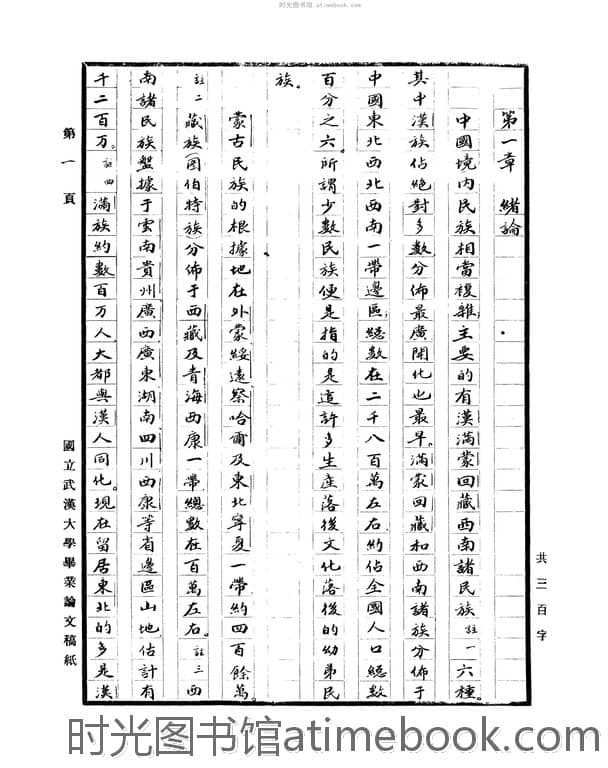 时光图书馆 atimebook.com
第一章　緒論
中國境内民族相當複雜，主要的有漢滿蒙回藏西南諸民族註一六種。
其中漢族佔絕對多數分佈最廣開化也最早。滿蒙回藏和西南諸族分佈于
中國東北西北西南一帶邊區，總數在二千八百萬左右，約佔全國人口總數
百分之六。所謂少數民族便是指的是這許多生產落後文化落後的幼弟民
族。
蒙古民族的根據地在外蒙綏遠察哈爾及東北寧夏一帶約四百餘萬。
註二藏族（圖伯特族）分佈于西藏及青海西康一帶總數在百萬左右。註三西
南諸民族盤據于雲南貴州廣西廣東湖南四川西康等省邊區山地，估計有
千二百万。註四滿族約數百万人大都與漢人同化。現在留居東北的多是漢
第一頁
國立武漢大學畢業論文稿紙
共三百字
时光图书馆atimebook.com